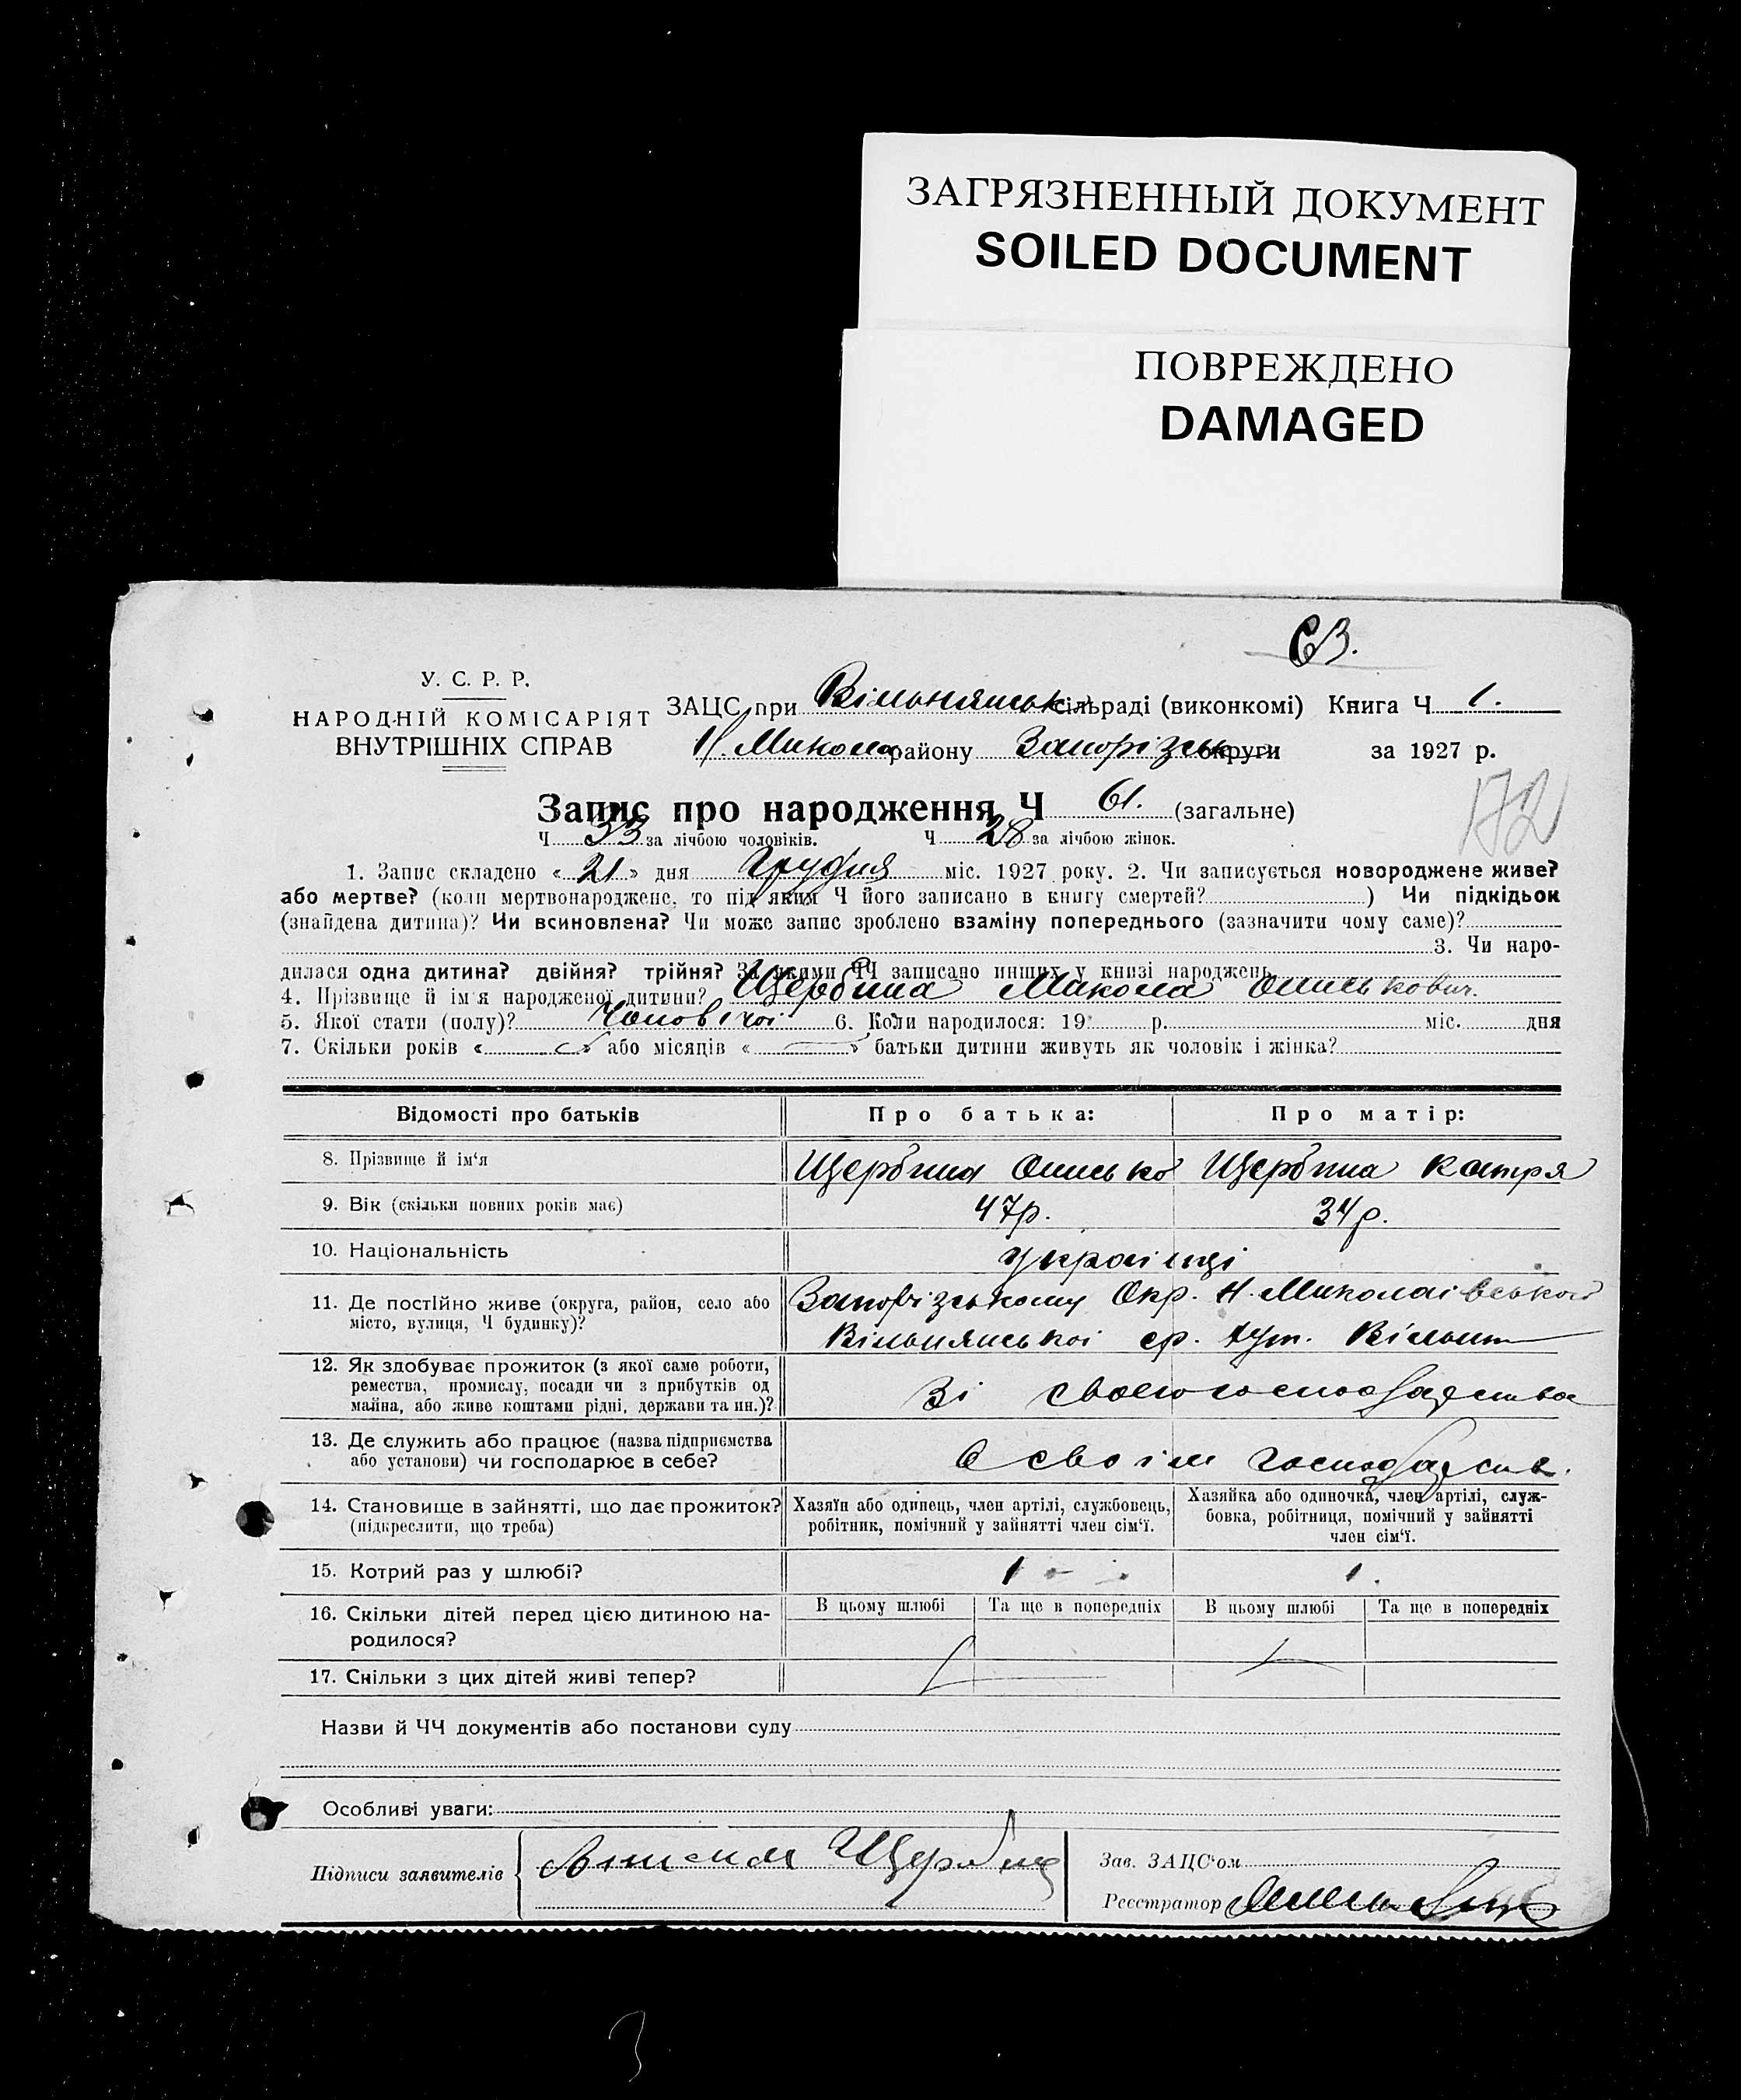 ЗАГРЯЗНЕННЫЙ ДОКУМЕНТ
SOILED DOCUMENT
ПОВРЕЖДЕНО
DAMAGED
63.
У. С. Р. Р.
НАРОДНІЙ КОМІСАРІЯТ
ВНУТРІШНІХ СПРАВ
ЗАЦС при Вільнянській сільраді (виконкомі) Книга Ч 1.
Н. Микола району Запорізськ округи за 1927 р.
172
Запис про народження Ч 61. (загальне)
Ч 33 за лічбою чоловіків. Ч 28 за лічбою жінок.
1. Запис складено « 21 » дня Грудня міс. 1927 року. 2. Чи записується новороджене живе?
або мертве? (коли мертвонароджене, то під яким Ч його записано в книгу смертей? ) Чи підкідьок
(знайдена дитина)? Чи всиновлена? Чи може запис зроблено взаміну попереднього (зазначити чому саме)?
3. Чи наро-
дилася одна дитина? двійня? трійня? За якими ЧЧ записано инших у книзі народжень
4. Прізвище й ім'я народженої дитини? Щербина Микола Ониськович.
5. Якої стати (полу)? Чоловічої 6. Коли народилося: 19 р. міс. дня
7. Скільки років « » або місяців « » батьки дитини живуть як чоловік і жінка?
Відомості про батьків Про батька: Про матір:
8. Прізвище й ім'я Щербина Онисько Щербина Катря
9. Вік (скільки повних років має) 47р. 34р.
10. Національність українці
11. Де постійно живе (округа, район, село або місто, вулиця, Ч будинку)? Запорізському Окр. Н. Миколаівської
Вільнянської ср. хут.
12. Як здобуває прожиток (з якої саме роботи, ремества, промислу, посади чи з прибутків од майна, або живе коштами рідні, держави та ин.)? Зі свого господарства
13. Де служить або працює (назва підприємства або установи) чи господарює в себе? В своім господарств.
14. Становище в зайнятті, що дає прожиток? (підкреслити, що треба) Хазяїн або одинець, член артілі, службовець, робітник, помічний у зайнятті член сім'ї. Хазяйка або одиночка, член артілі, служ-бовка, робітниця, помічний у зайнятті член сім'ї.
15. Котрий раз у шлюбі? 1 1.
16. Скільки дітей перед цією дитиною на-родилося? В цьому шлюбі Та ще в попередніх В цьому шлюбі Та ще в попередніх
17. Скільки з цих дітей живі тепер?
Назви й ЧЧ документів або постанови суду
Особливі уваги:
Підписи заявителів Щербина
Зав. ЗАЦС'ом
Реєстратор
3